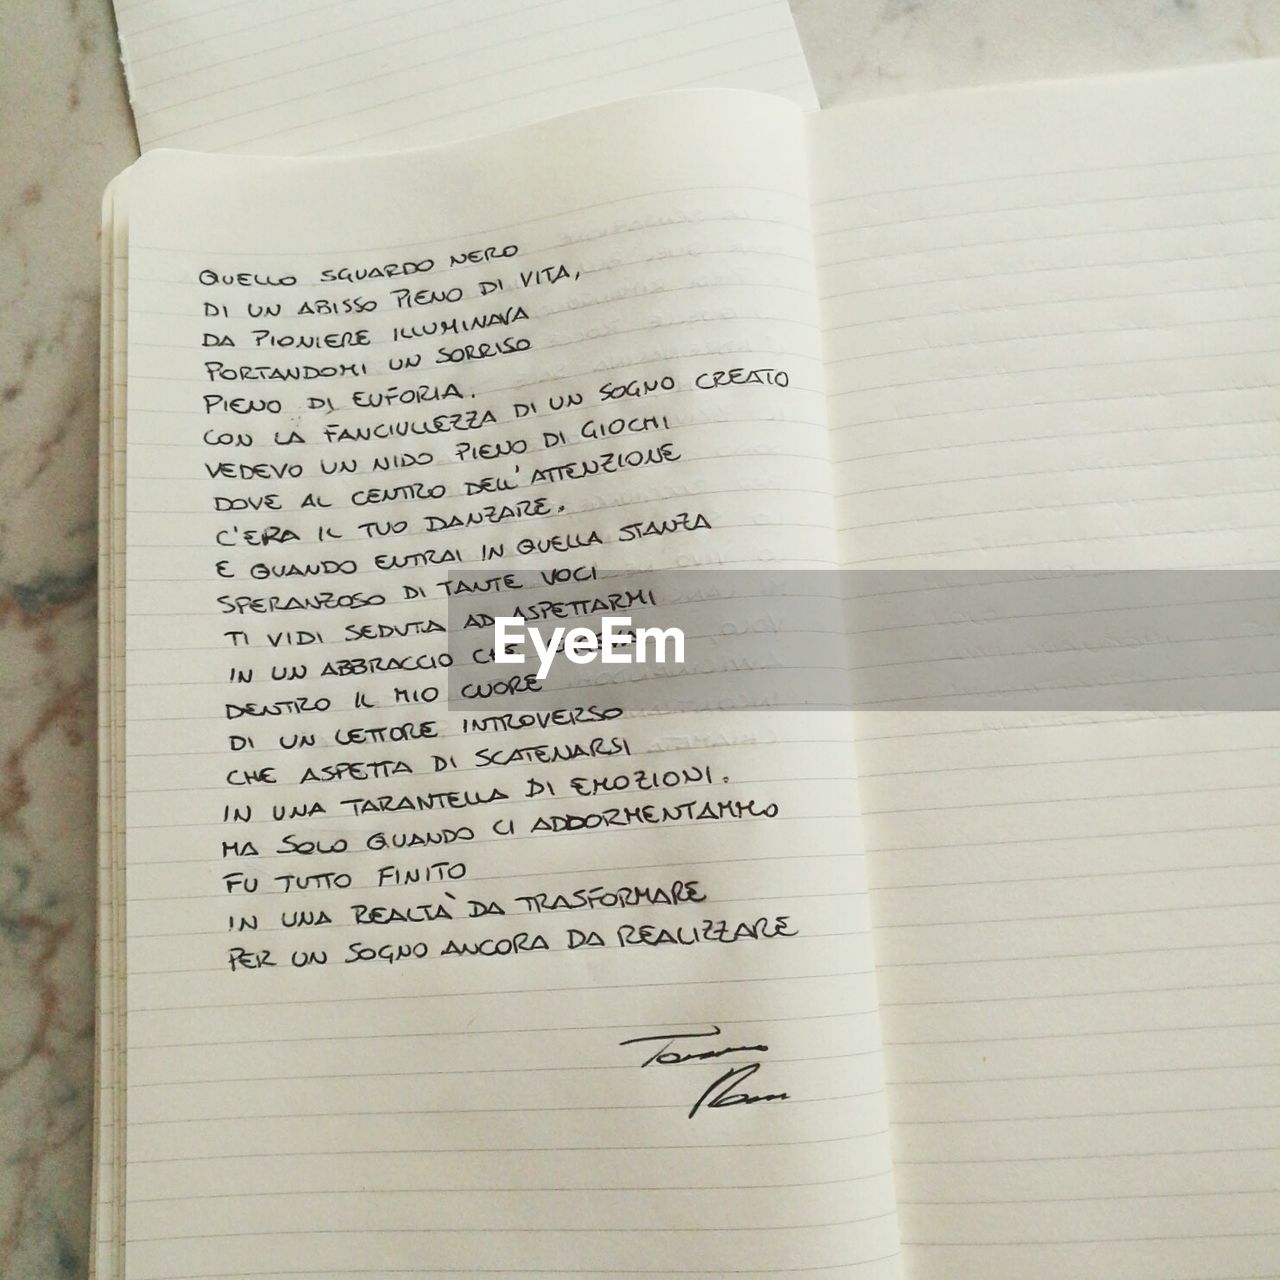 QUELLO SGUARDO NERO
DI UN ABISSO PIENO DI VITA,
DA PIONIERE ILLUMINAVA
PORTANDOMI UN SORRISO
PIENO DI EUFORIA.
CON LA FANCIULLEZZA DI UN SOGNO CREATO
VEDEVO UN NIDO PIENO DI GIOCHI
DOVE AL CENTRO DELL'ATTENZIONE
C'ERA IL TUO DANZARE.
E QUANDO ENTRAI IN QUELLA STANZA
SPERANZOSO DI TANTE VOCI
TI VIDI SEDUTA AD ASPETTARMI
IN UN ABBRACCIO CHE
DENTRO IL MIO CUORE
DI UN LETTORE INTROVERSO
CHE ASPETTA DI SCATENARSI
IN UNA TARANTELLA DI EMOZIONI.
MA SOLO QUANDO CI ADDORMENTAMMO
FU TUTTO FINITO
IN UNA REALTÀ DA TRASFORMARE
PER UN SOGNO ANCORA DA REALIZZARE
EyeEm